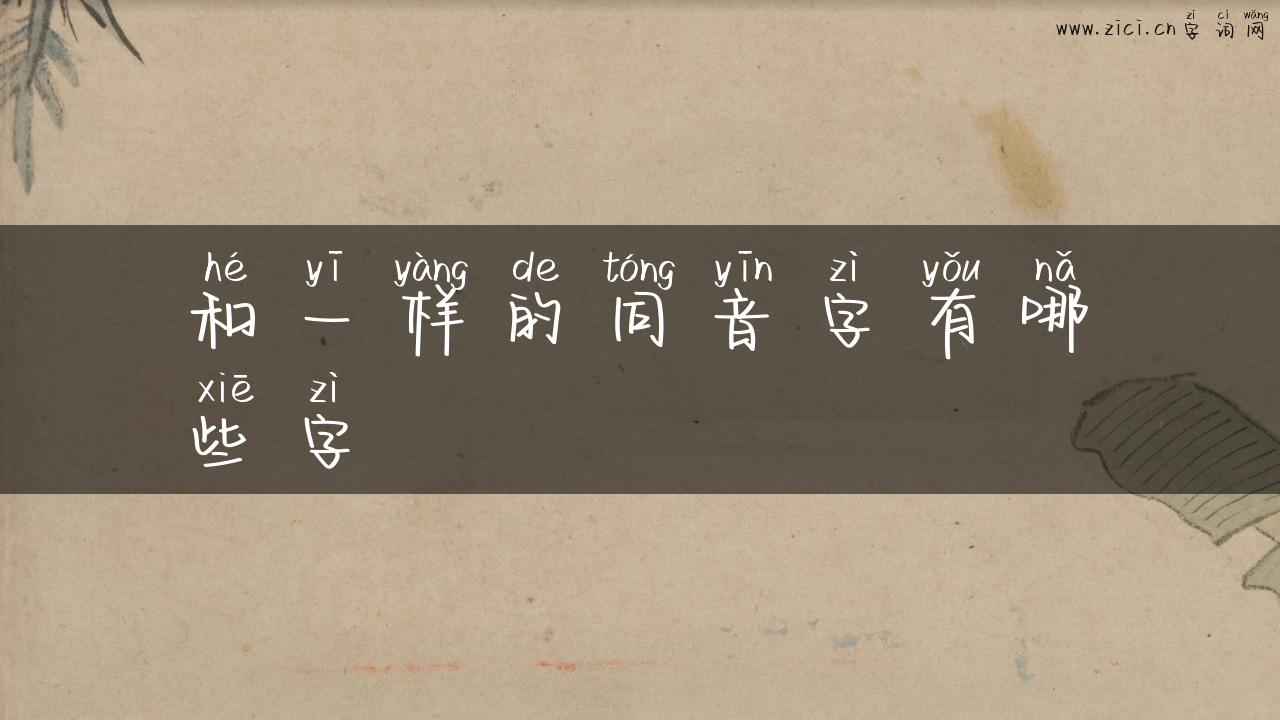 zì cí wǎng
www.zici.cn字词网
hé yī yàng de tóng yīn zì yǒu nǎ
和一样的同音字有哪
xiē zì
些字